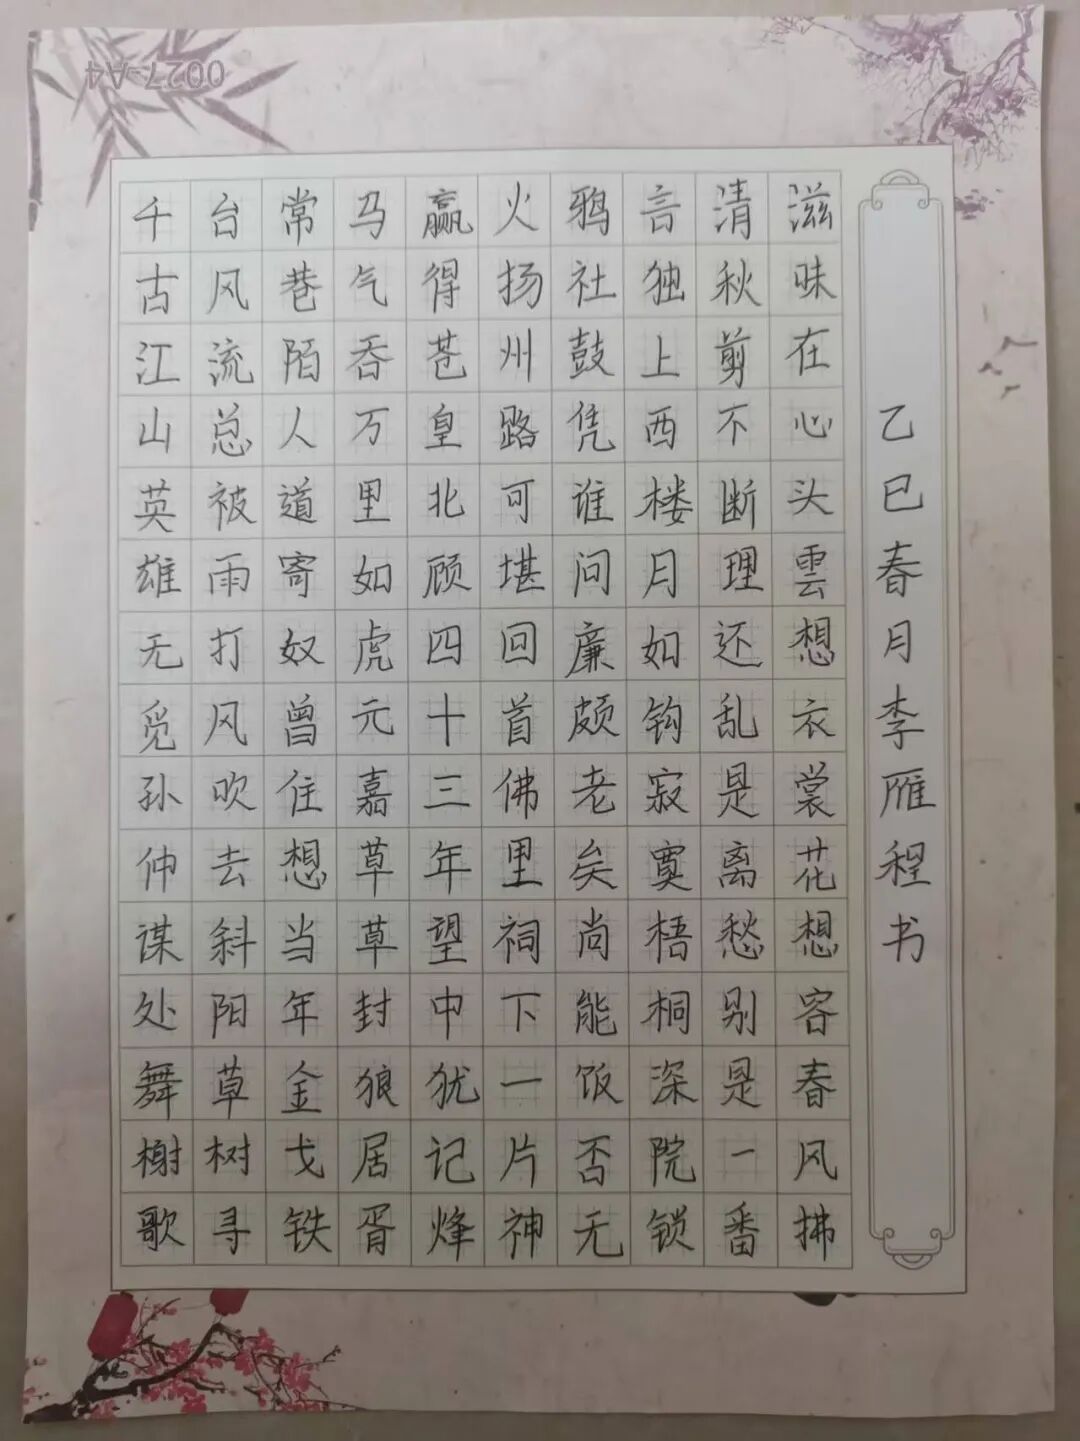 0027-A4
千古江山英雄无觅孙仲谋处舞榭歌
台风流总被雨打风吹去斜阳草树寻
常巷陌人道寄奴曾住想当年金戈铁
马气吞万里如虎元嘉草草封狼居胥
赢得苍皇北顾四十三年望中犹记烽
火扬州路可堪回首佛里祠下一片神
鸦社鼓凭谁问廉颇老矣尚能饭否无
言独上西楼月如钩寂寞梧桐深院锁
清秋剪不断理还乱是离愁别是一番
滋味在心头雲想衣裳花想容春风拂
乙巳春月李雁程书